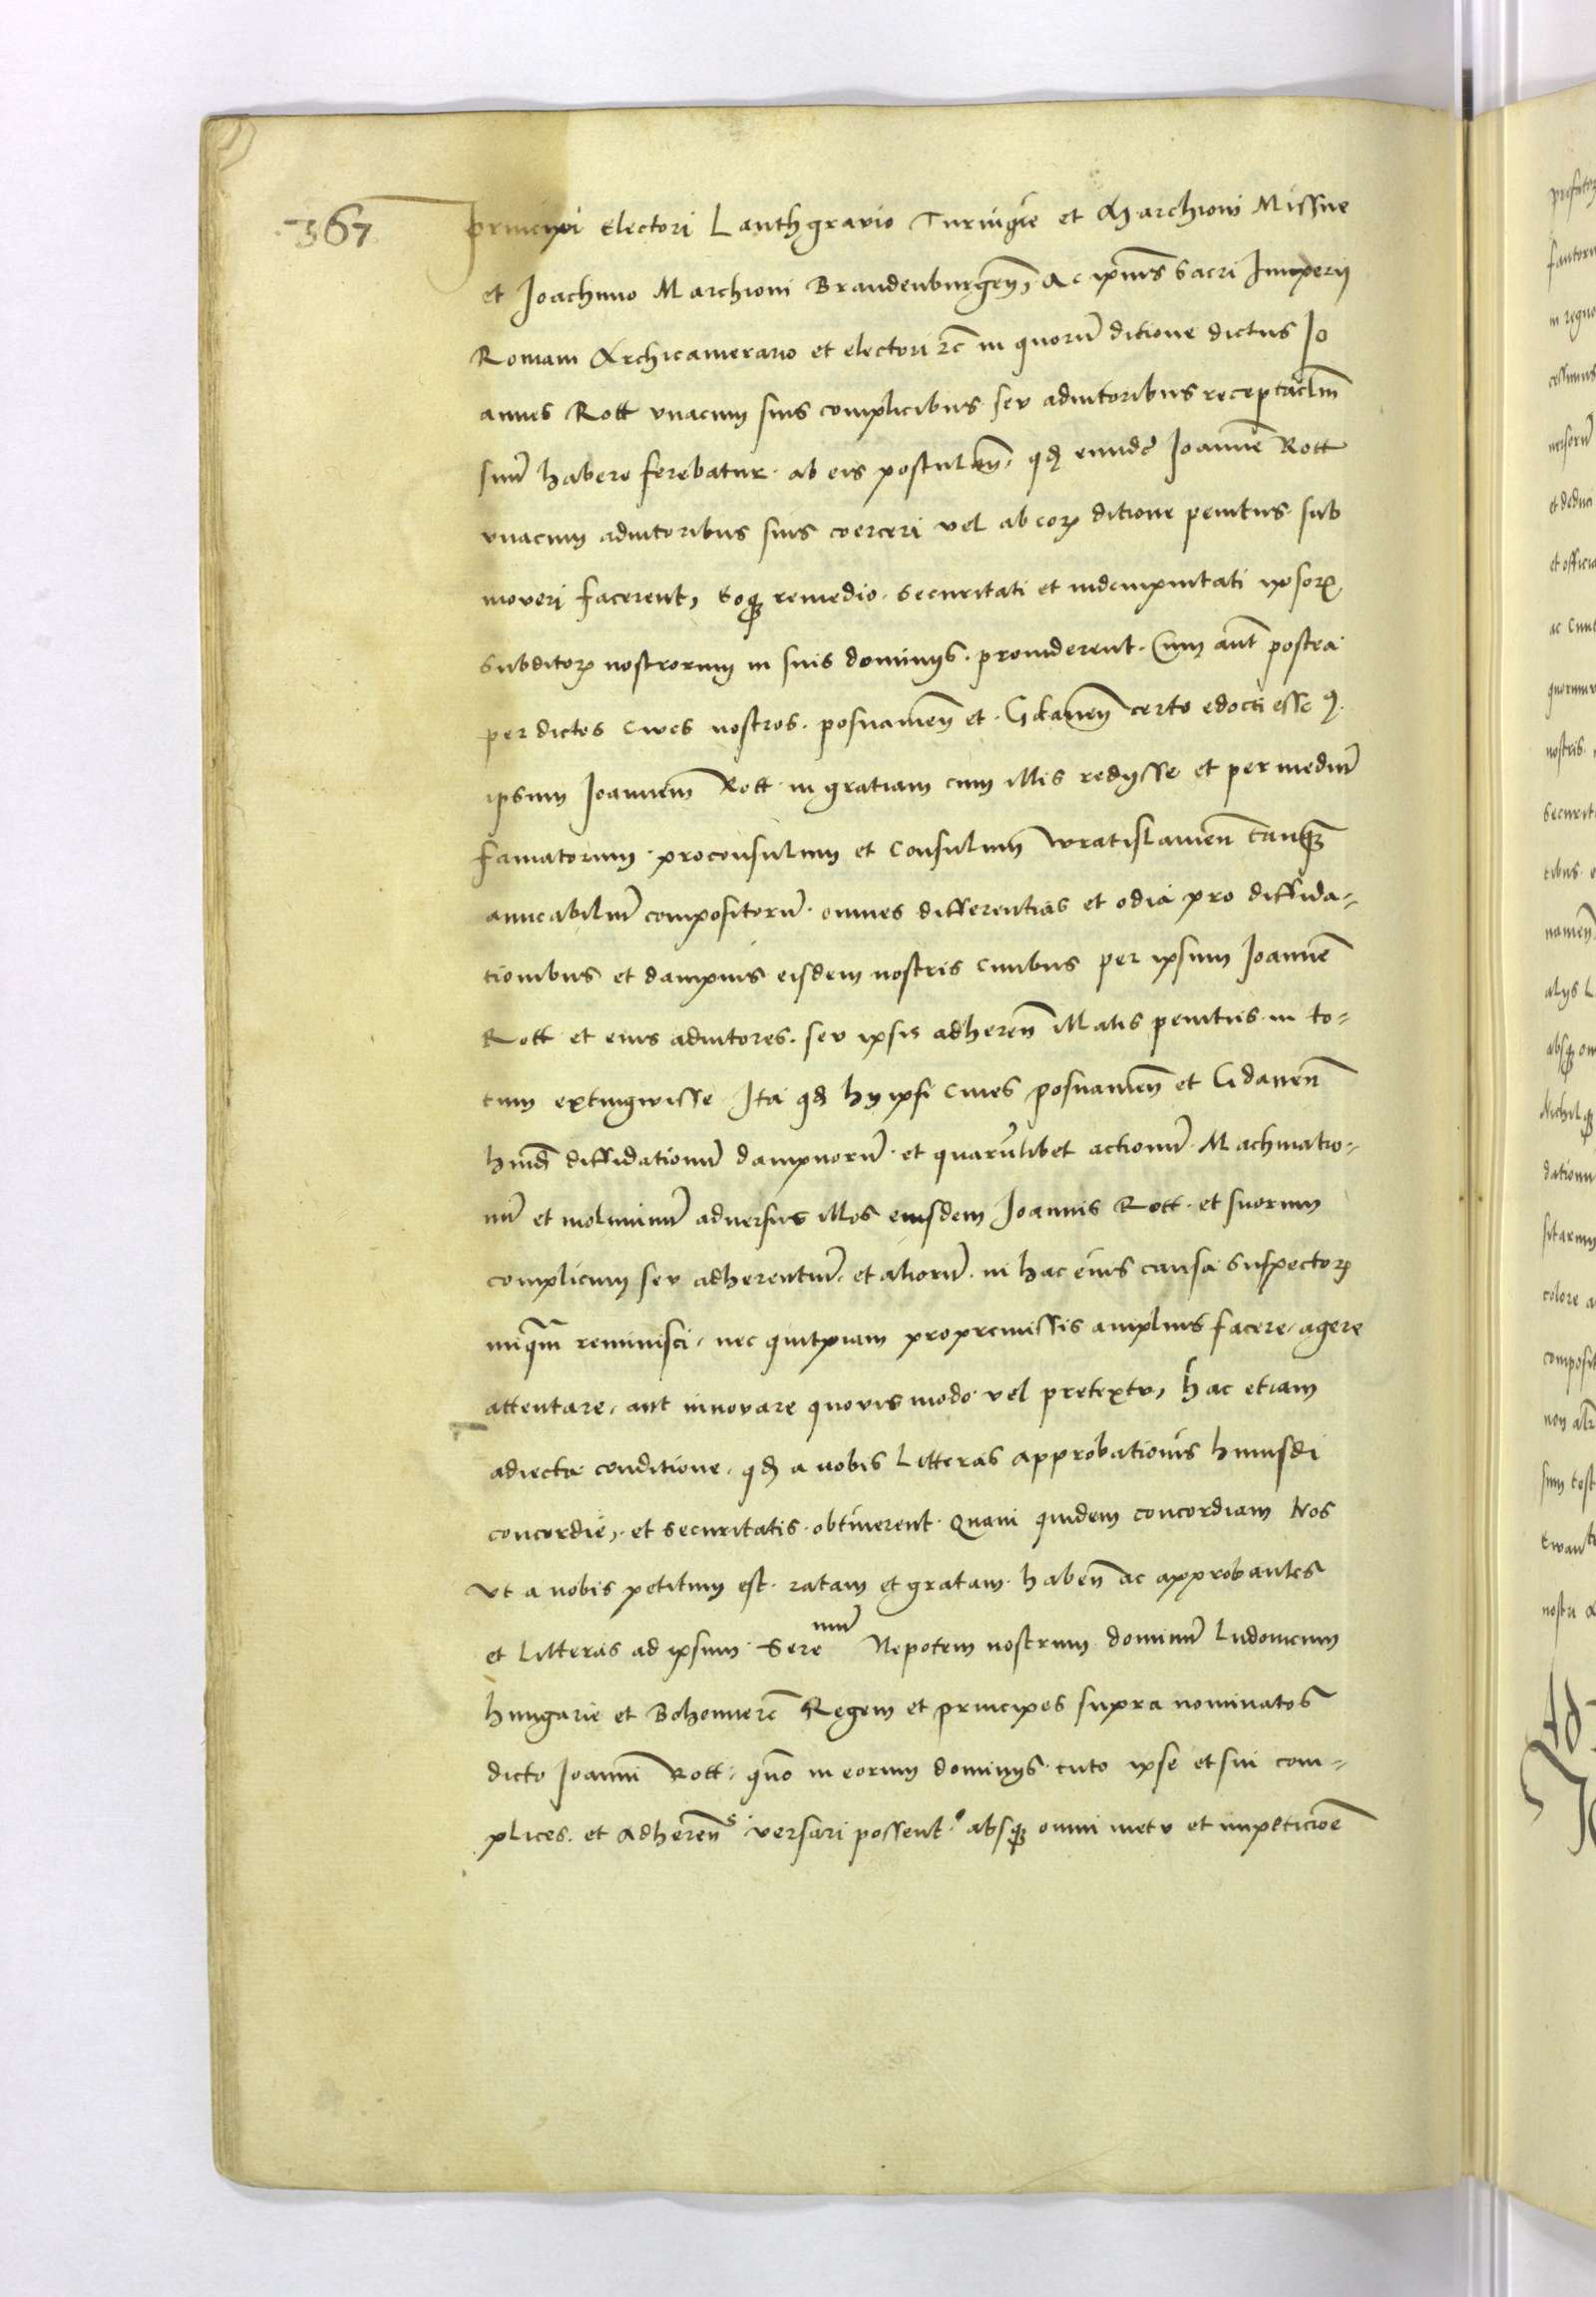 367
principi Electori Lanthgravio Turingie et Marchioni Missne
et Joachimo Marchioni Brandenburgen̄, ac ip̄ius sacri Imperii
Romani Archicamerario et electori ꝛc̄ in quorū ditione dictus Jo
annes Rott vnacum suis complicibus seu adiutoribus receptaclm̄
suū habere ferebatur. ab eis postulan̄. qd̄ eundē Joannē Rott
vnacum adiutoribus suis coerceri vel ab eoꝝ ditione penitus sub
moveri facerent, Eoqꝫ remedio. securitati et indempnitati ipsoꝝ
subditoꝝ nostrorum in suis dominys. prouiderent. Cum aūt postea
per dictos ciues nostros. posnanien̄ et. Gdanen̄ certo edocti esse.
ipsum Joannem Rott in gratiam cum illis redysse et per mediū
famatorum proconsulum et consulum wratislauien̄ tanqꝫ
amicabiliū compositorū. omnes differentias et odia pro diffida-
tionibus et dampnis eisdem nostris ciuibus per ipsum Joannē
Rott et eius adiutores. seu ipsis adheren̄ illatis penitus in to-
tum extingwisse Ita qd̄ hy ipsi ciues posnanien̄ et Gdanen̄
hm̄di diffidationū dampnorū. et quarūlibet actionū. Machinatio-
nū et moliminū adversus illos eiusdem Joannis Rott. et suorum
complicum seu adherentiū. et aliorū. in hac eius causa suspectoꝝ
nūqm̄ reminisci. nec quitpiam pro premissis amplius facere. agere
attentare. aut innovare quovis modo vel pretextu, hac etiam
adiecta conditione. qd̄ a nobis litteras approbationis huiusdi
concordie, et securitatis. obtinerent. Quam quidem concordiam Nos
vt a nobis petitum est. ratam et gratam. haben̄ ac approbantes
et litteras ad ipsum. Serenū Nepotem nostrum dominū Ludovicum
hungarie et Bohemie ꝛc̄ Regem et principes supra nominatos
dicto Joanni Rott. quō in eorum dominys tuto ipse et sui com-
plices. et adheren̄s versari possent. absqꝫ omni metu et impeticiōe